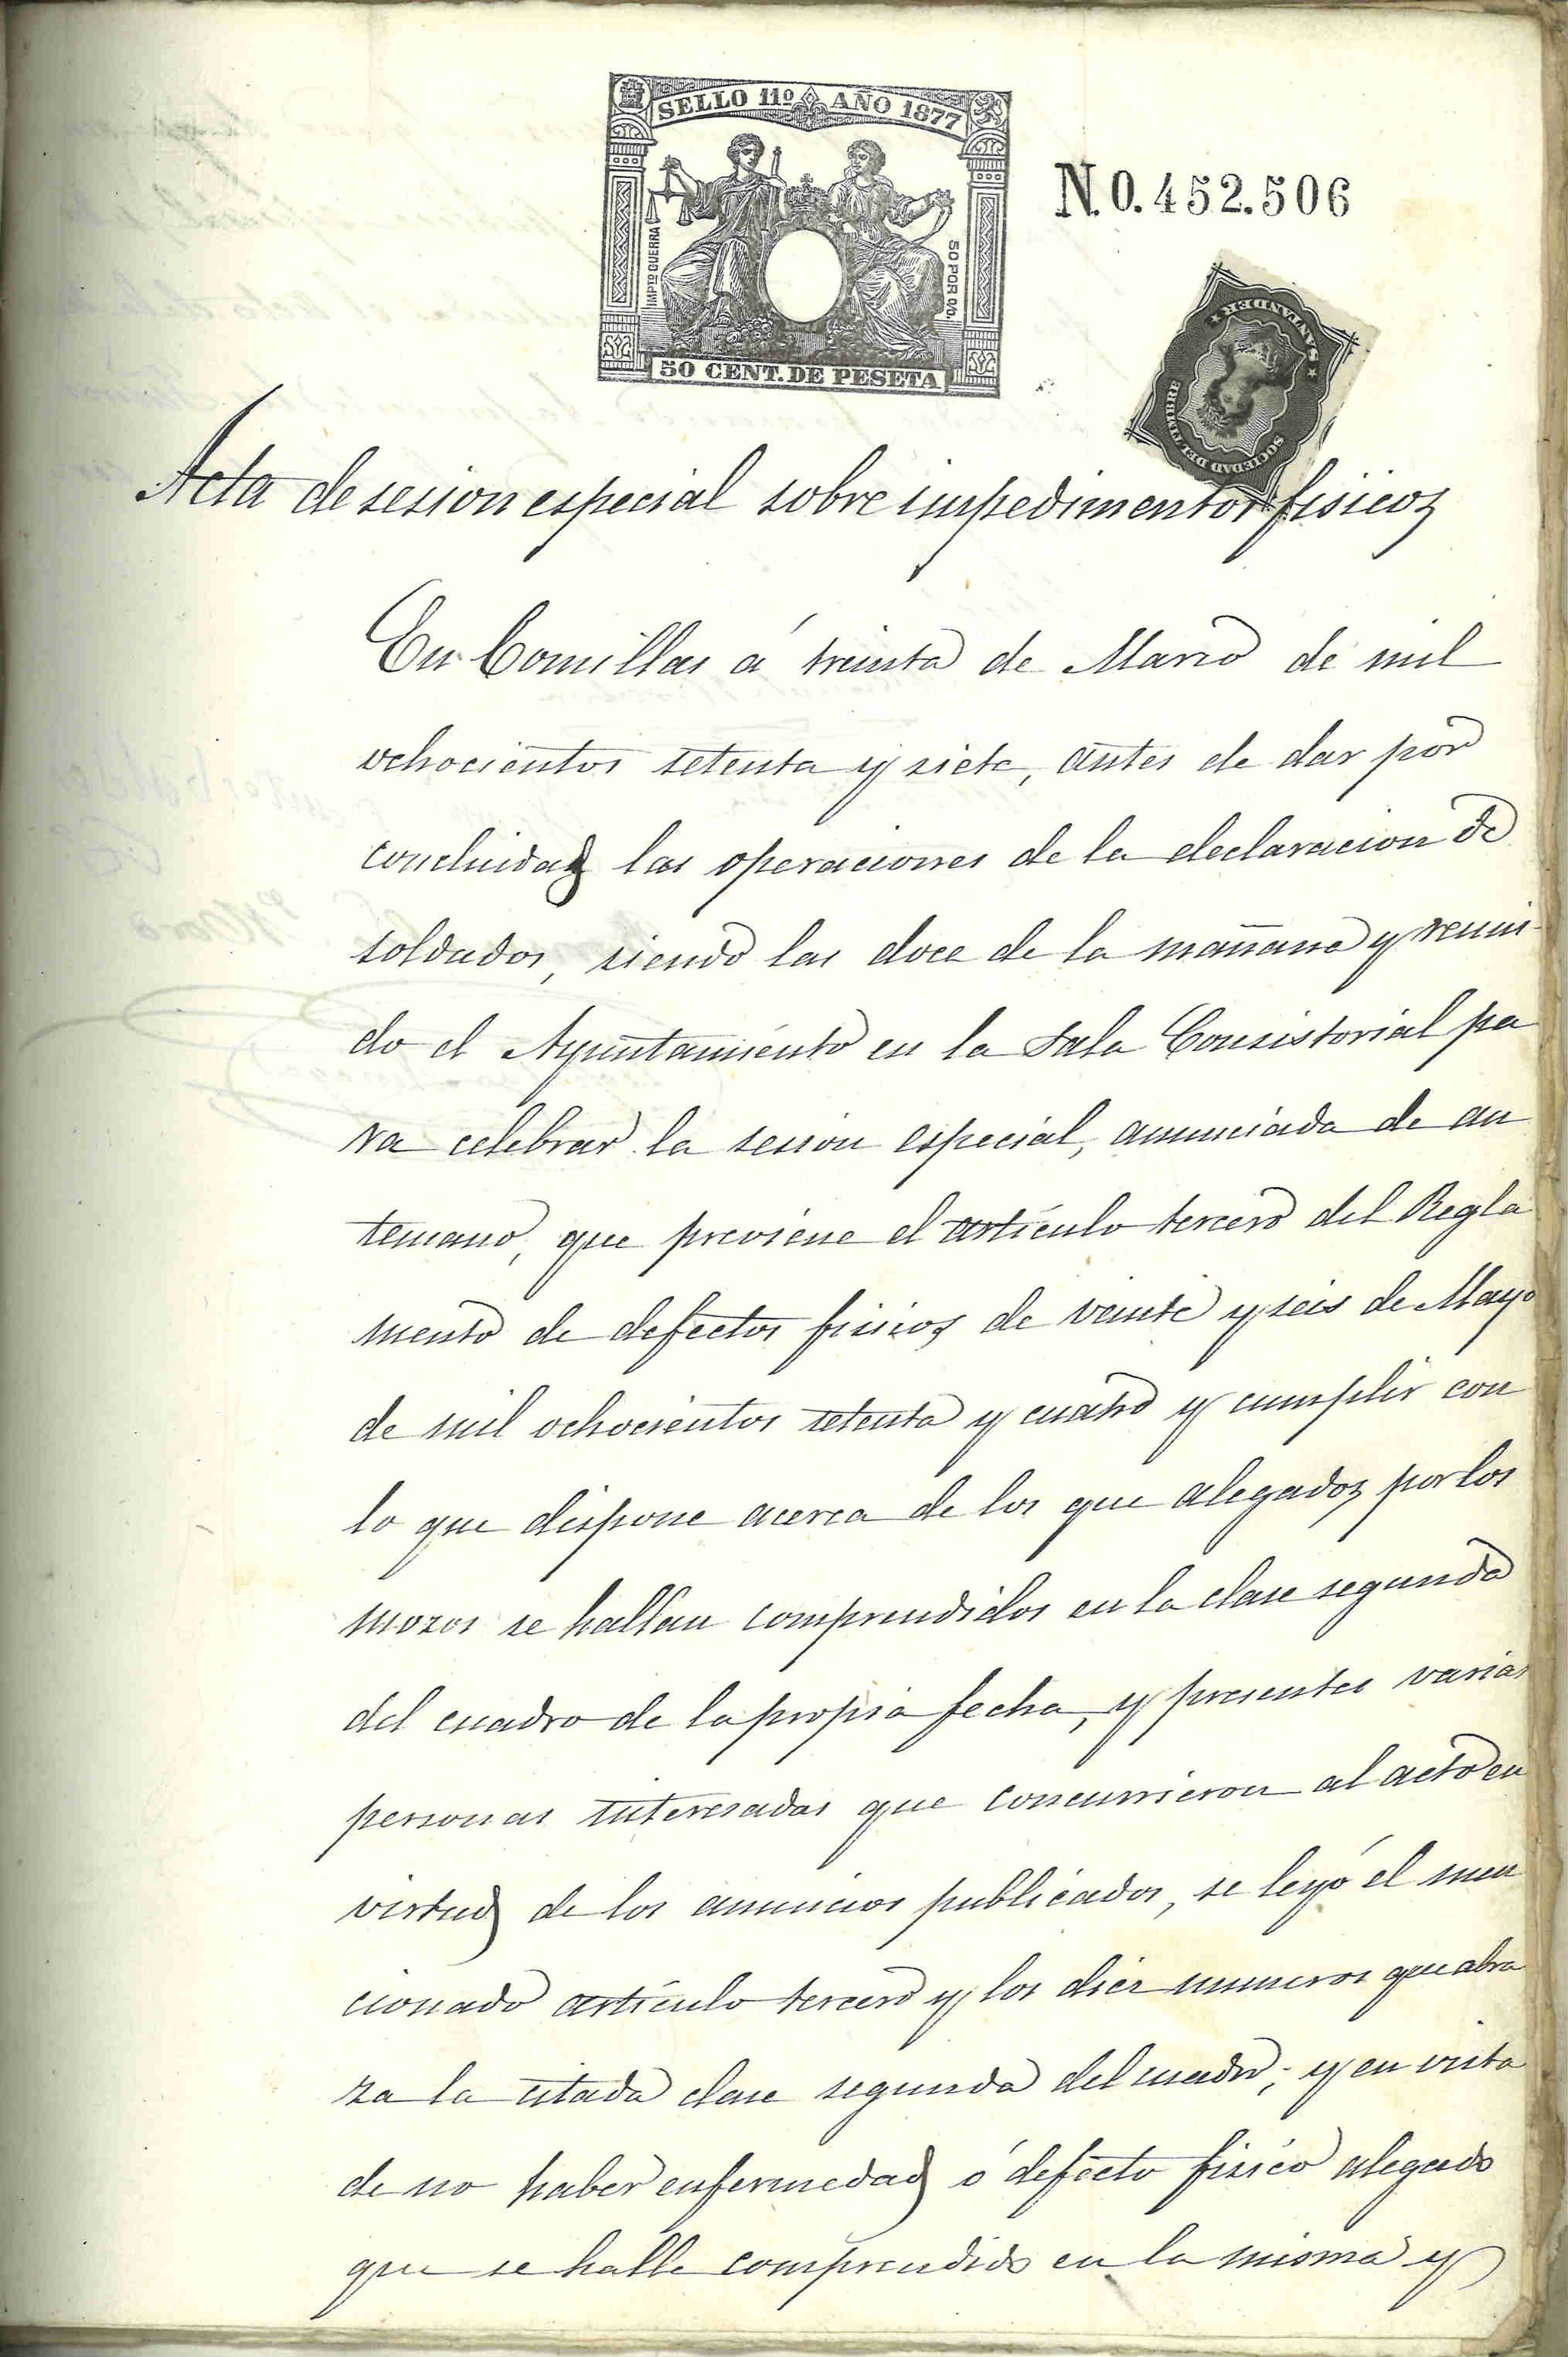 SELLO 11º AÑO 1877
IMPTO GUERRA
50 POR 0/0.
50 CENT. DE PESETA
N.0.452.506
SOCIEDAD DEL TIMBRE
★ SANTANDER ★
Acta de sesion especial sobre impedimentos fisicos
En Comillas á treinta de Marzo de mil
ochocientos setenta y siete, antes de dar por
concluidas las operaciones de la declaracion de
soldados, siendo las doce de la mañana y reuni-
do el Ayuntamiento en la Sala Consistorial pa
ra celebrar la sesion especial, anunciada de an
temano, que previene el artículo tercero del Regla
mento de defectos fisicos de veinte y seis de Mayo
de mil ochocientos setenta y cuatro y cumplir con
lo que dispone acerca de los que alegados por los
mozos se hallan comprendidos en la clase segunda
del cuadro de la propia fecha, y presentes varias
personas interesadas que concurrieron al acto en
virtud de los anuncios publicados, se leyó el men
cionado artículo tercero y los diez numeros que abra
za la citada clase segunda del cuadro; y en vista
de no haber enfermedad ó defecto fisico alegado
que se halle comprendido en la misma y